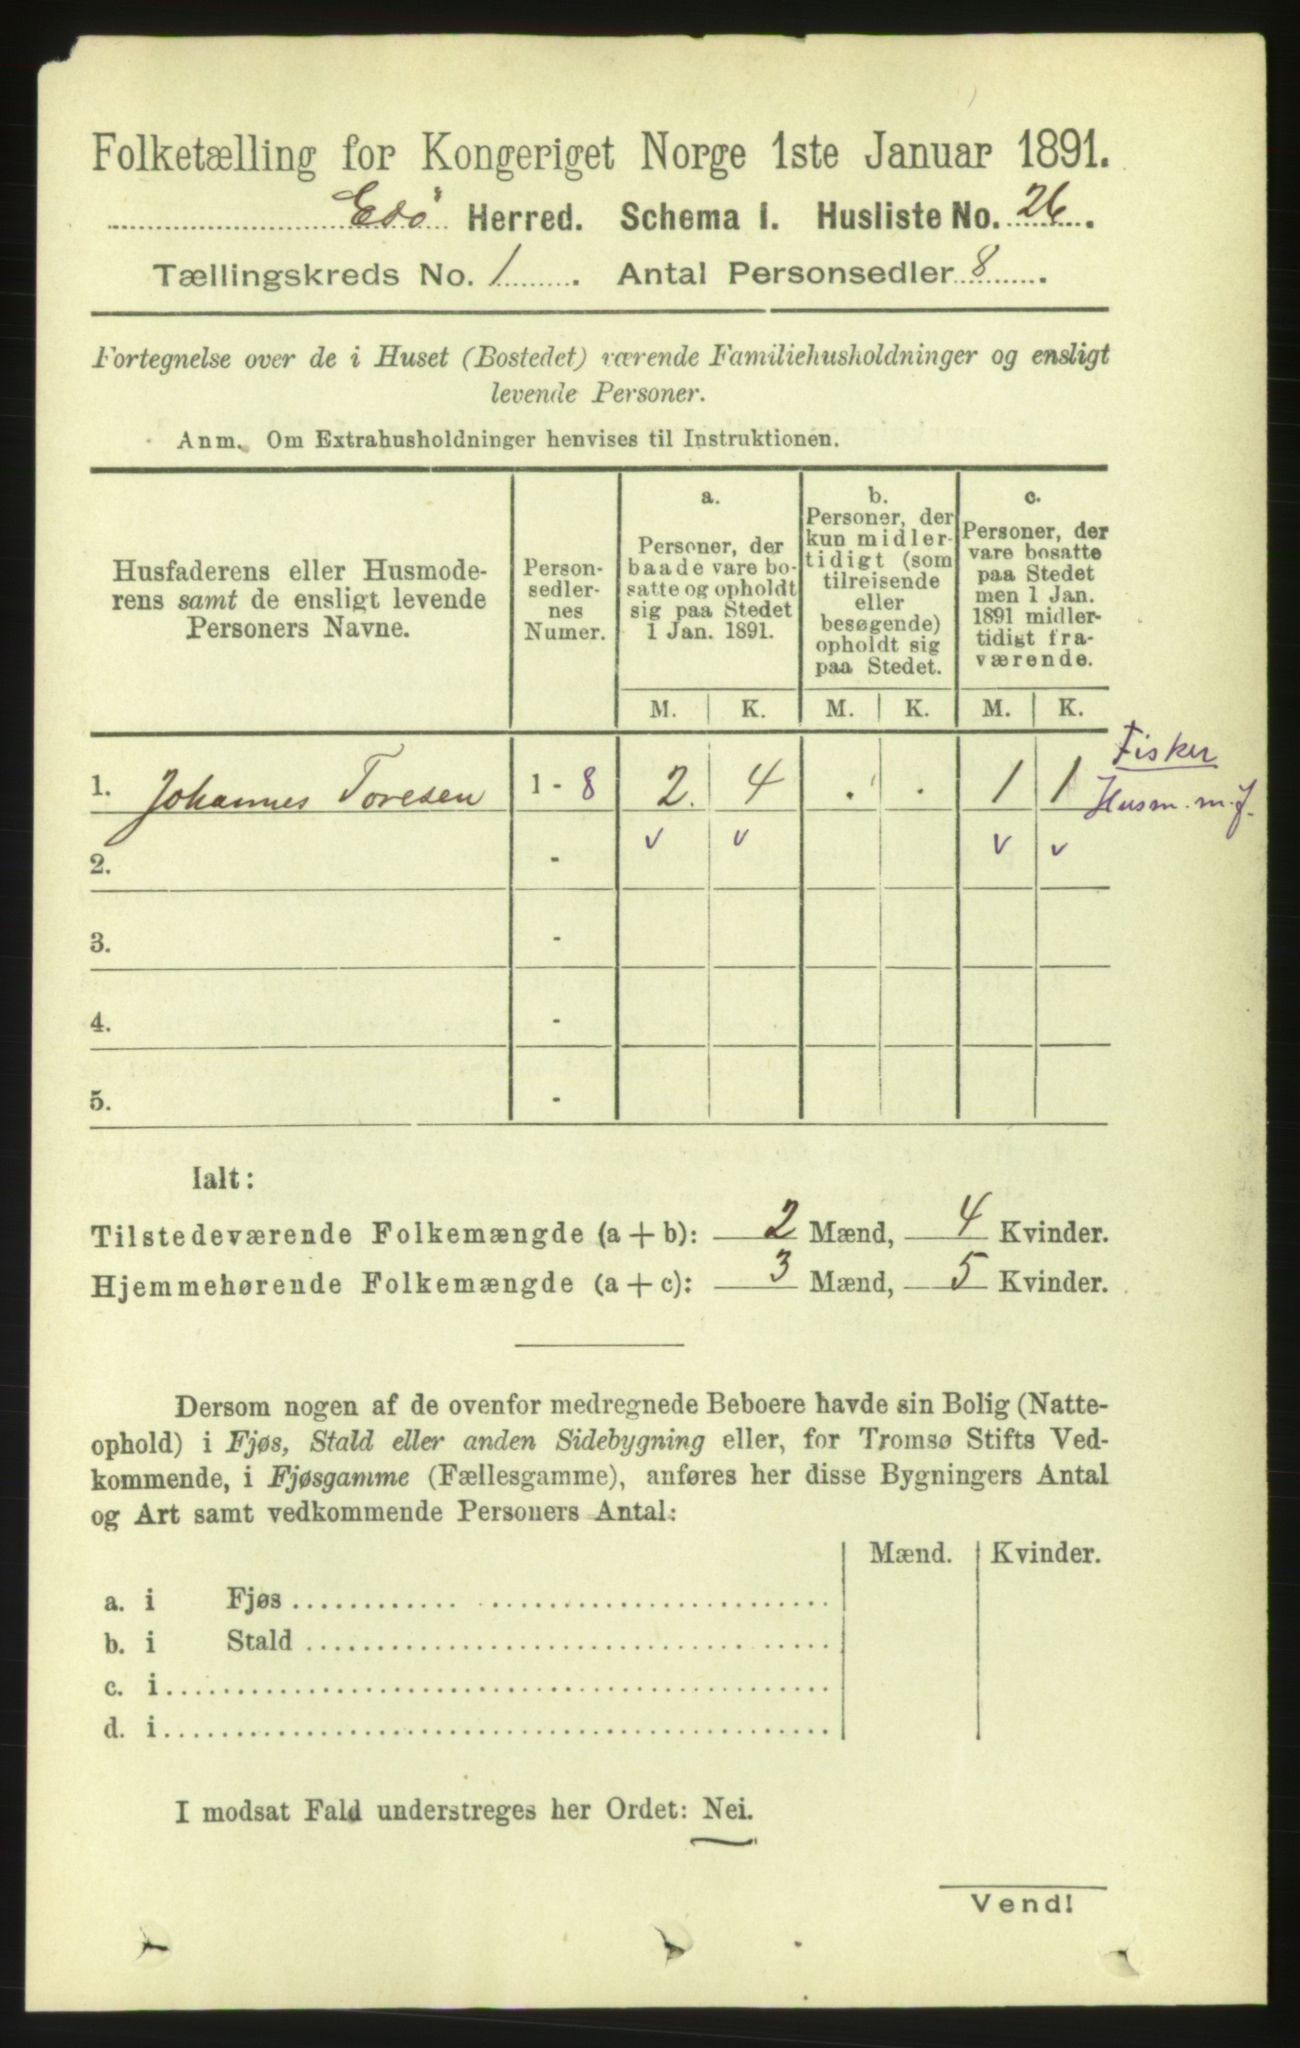 Folketælling for Kongeriget Norge 1ste Januar 1891.
Edø Herred. Schema I. Husliste No. 26.
Tællingskreds No. 1. Antal Personsedler 8.
Fortegnelse over de i Huset (Bostedet) værende Familiehusholdninger og ensligt
levende Personer.
Anm. Om Extrahusholdninger henvises til Instruktionen.
Husfaderens eller Husmode-
rens samt de ensligt levende
Personers Navne.
Person-
sedler-
nes
Numer.
a.
Personer, der
baade vare bo-
satte og opholdt
sig paa Stedet
1 Jan. 1891.
b.
Personer, der
kun midler-
tidigt (som
tilreisende
eller
besøgende)
opholdt sig
paa Stedet.
c.
Personer, der
vare bosatte
paa Stedet
men 1 Jan.
1891 midler-
tidigt fra-
værende.
M. K. M. K. M. K.
Fisker
1. Johannes Toresen 1 - 8 2. 4 . . 1 1 Husm. m. J.
2. - v v v v
3. -
4. -
5. -
Ialt:
Tilstedeværende Folkemængde (a + b): 2 Mænd, 4 Kvinder.
Hjemmehørende Folkemængde (a + c): 3 Mænd, 5 Kvinder.
Dersom nogen af de ovenfor medregnede Beboere havde sin Bolig (Natte-
ophold) i Fjøs, Stald eller anden Sidebygning eller, for Tromsø Stifts Ved-
kommende, i Fjøsgamme (Fællesgamme), anføres her disse Bygningers Antal
og Art samt vedkommende Personers Antal:
Mænd. Kvinder.
a. i Fjøs
b. i Stald
c. i
d. i
I modsat Fald understreges her Ordet: Nei.
Vend!